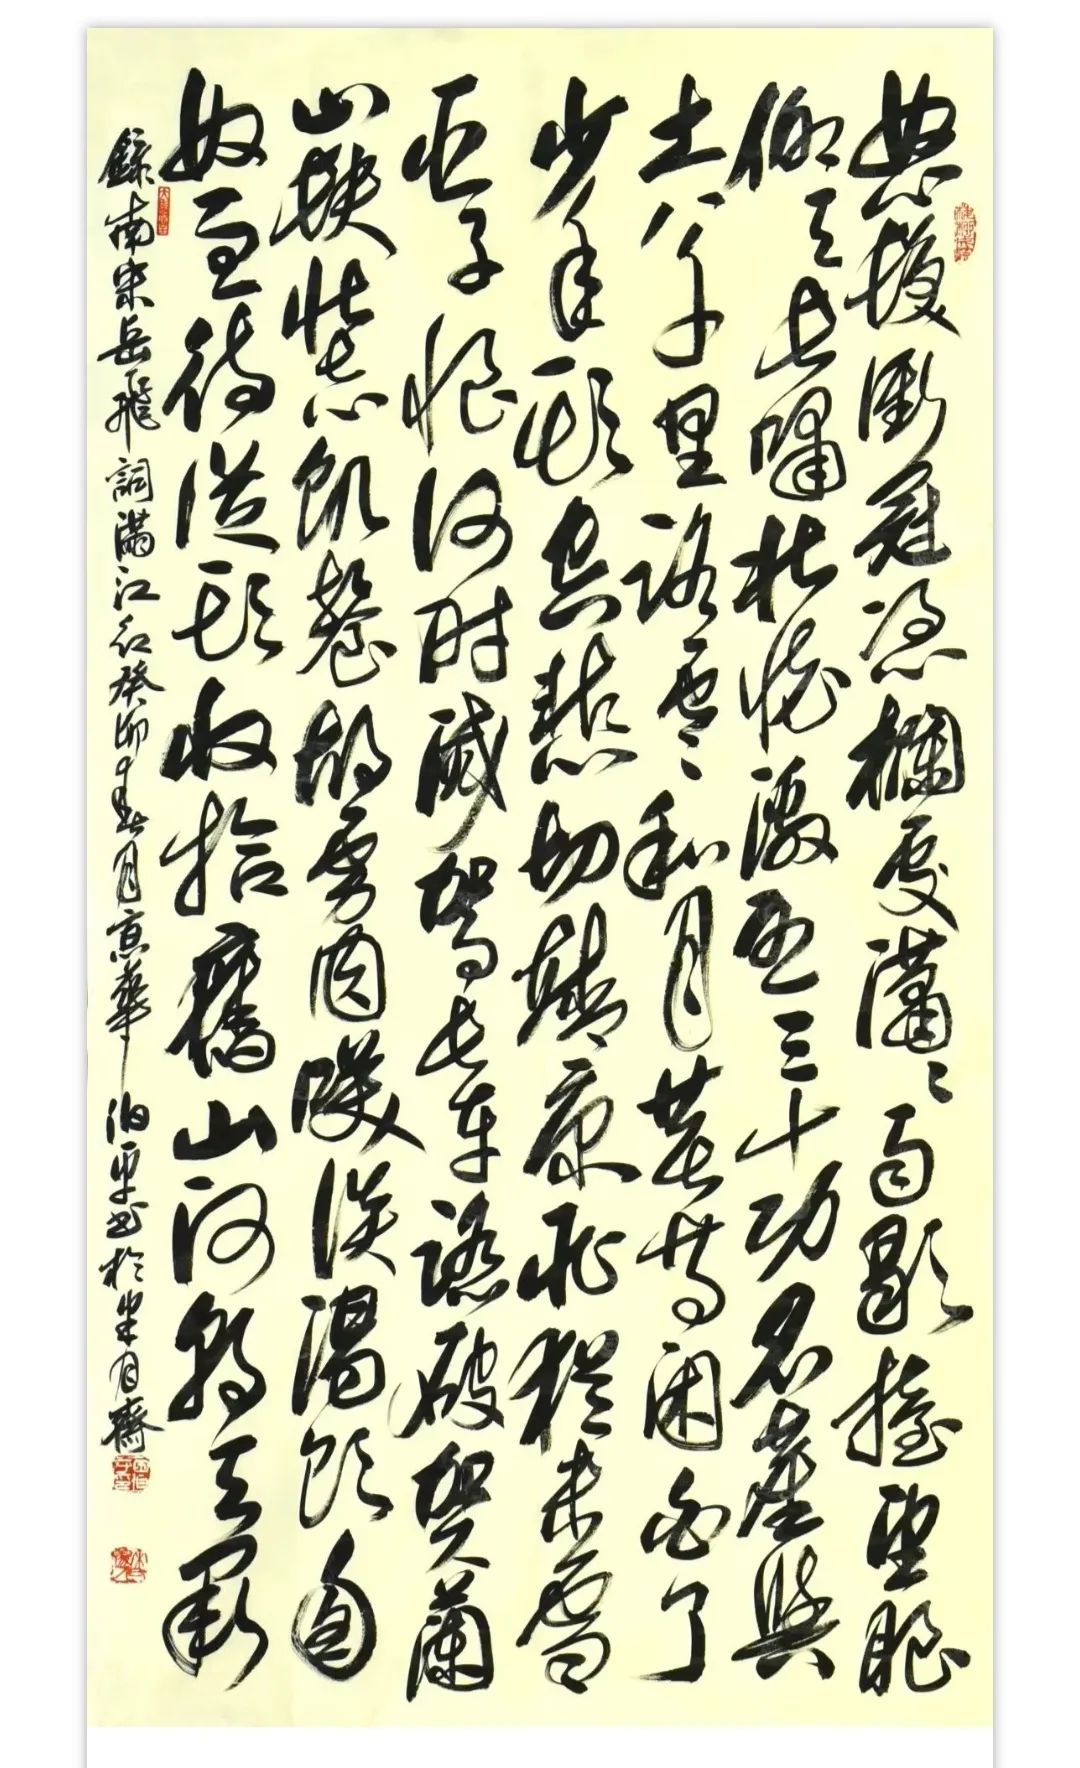 怒髮衝冠憑欄處瀟瀟雨歇擡望眼
仰天長嘯壯懷激烈三十功名塵與
土八千里路雲和月莫等閑白了
少年頭空悲切靖康恥猶未雪
臣子恨何時滅駕長車踏破賀蘭
山缺壯志飢餐胡虜肉笑談渴飲匈
奴血待從頭收拾舊山河朝天闕
錄南宋岳飛詞滿江紅癸卯年春月京華平書於月齋